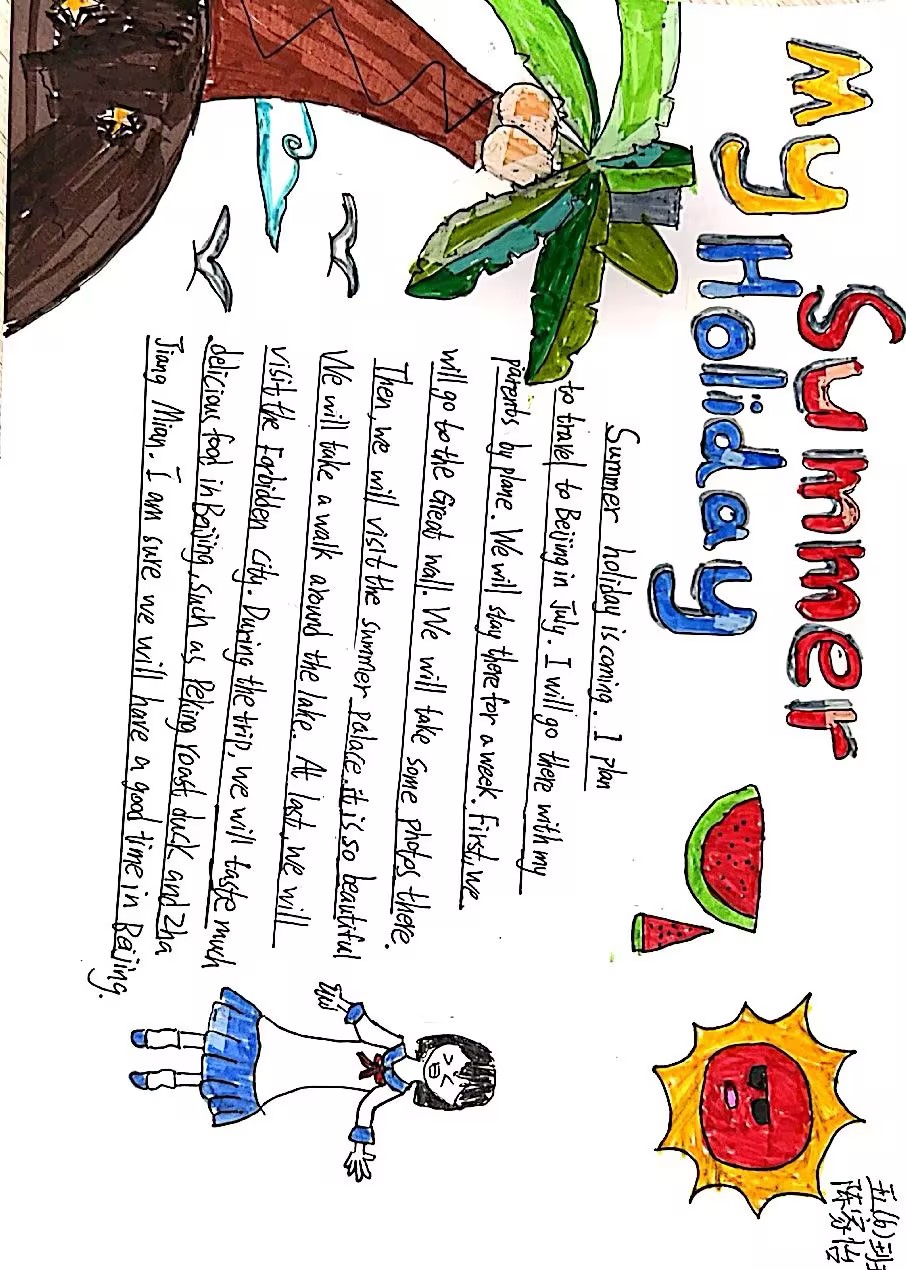 My Summer
Holiday
五(6)班
陈家怡
Summer holiday is coming. I plan
to travel to Beijing in July. I will go there with my
parents by plane. We will stay there for a week. First, we
will go to the Great wall. We will take some photos there.
Then, we will visit the summer palace. it is so beautiful
We will take a walk around the lake. At last, we will
visit the Forbidden city. During the trip, we will taste much
delicious food in Beijing, such as Peking roast duck and Zha
Jiang Mian. I am sure we will have a good time in Beijing.